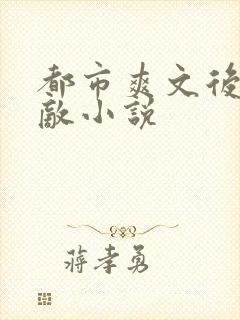 都市爽文後
敵小説
蔣孝勇